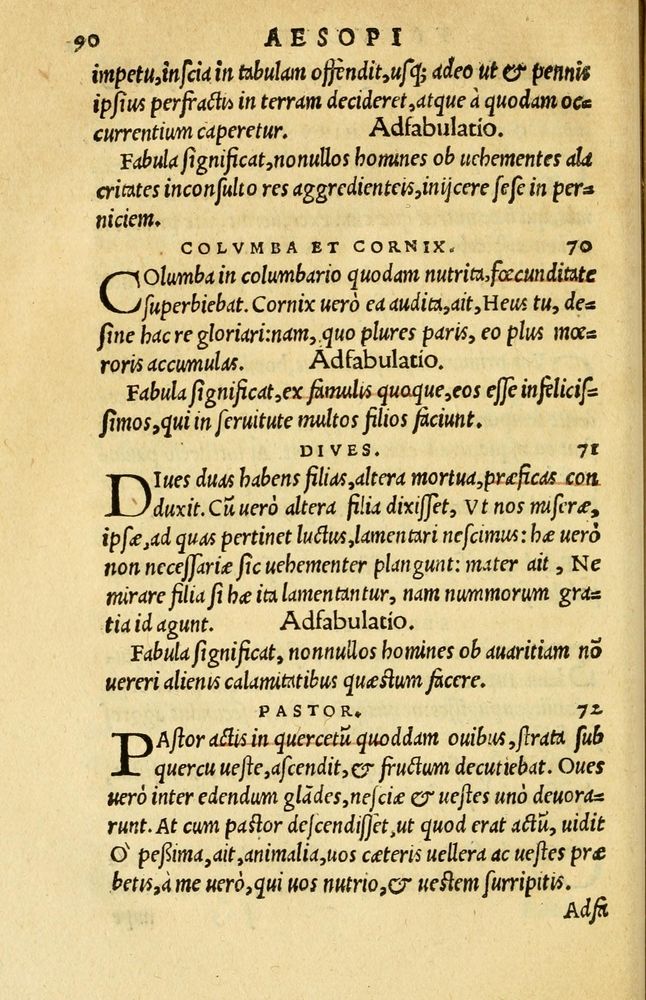 90 AESOPI
impetu, inscia in tabulam offendit, usq; adeo ut & pennis
ipsius perfractis in terram decideret, atque à quodam oc=
currentium caperetur. Adfabulatio.
Fabula significat, nonullos homines ob uehementes ala
critates inconsulto res aggredienteis, inijcere sese in per=
niciem.
COLVMBA ET CORNIX. 70
COlumba in columbario quodam nutrita, fœcunditate
superbiebat. Cornix uerò ea audita, ait, Heus tu, de=
sine hac re gloriari: nam, quo plures paris, eo plus mœ=
roris accumulas. Adfabulatio.
Fabula significat, ex famulis quoque, eos esse infelicis=
simos, qui in seruitute multos filios faciunt.
DIVES. 71
DIues duas habens filias, altera mortua, præficas con
duxit. Cũ uerò altera filia dixisset, Vt nos miseræ,
ipsæ, ad quas pertinet luctus, lamentari nescimus: hæ uerò
non necessariæ sic uehementer plangunt: mater ait, Ne
mirare filia si hæ ita lamentantur, nam nummorum gra=
tia id agunt. Adfabulatio.
Fabula significat, nonnullos homines ob auaritiam nõ
uereri alienis calamitatibus quæstum facere.
PASTOR. 72
PAstor actis in quercetũ quoddam ouibus, strata sub
quercu ueste, ascendit, & fructum decutiebat. Oues
uerò inter edendum glãdes, nesciæ & uestes unò deuora=
runt. At cum pastor descendisset, ut quod erat actũ, uidit
O' peßima, ait, animalia, uos cæteris uellera ac uestes præ
betis, à me uerò, qui uos nutrio, & uestem surripitis.
Adfa